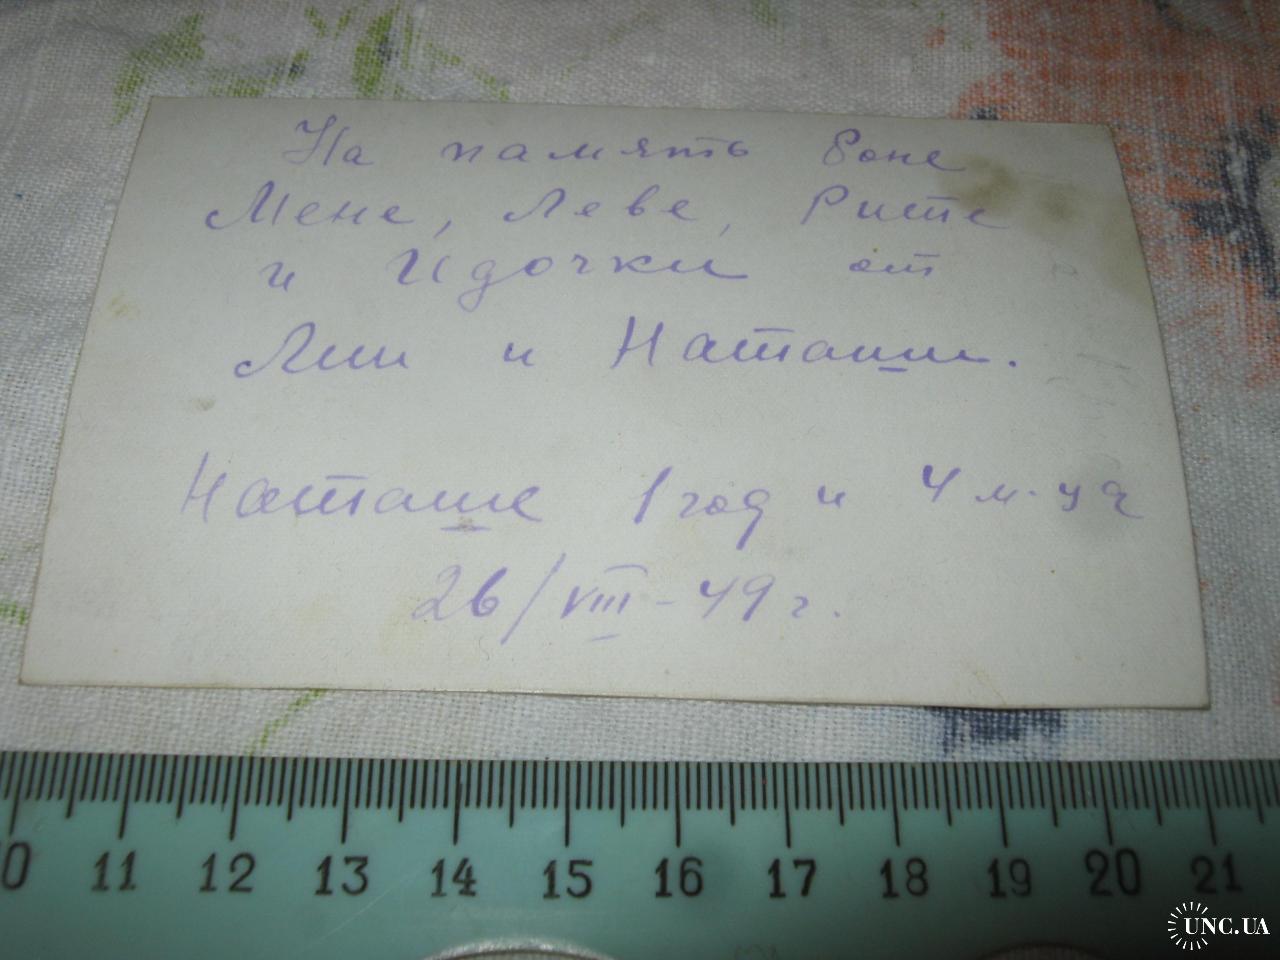 На память Боне
Мене, Леве, Рите
и Идочки от
Лии и Наташи.
Наташе 1 год и 4 м-ца
26/VIII-49 г.
10 11 12 13 14 15 16 17 18 19 20 21
UNC.UA